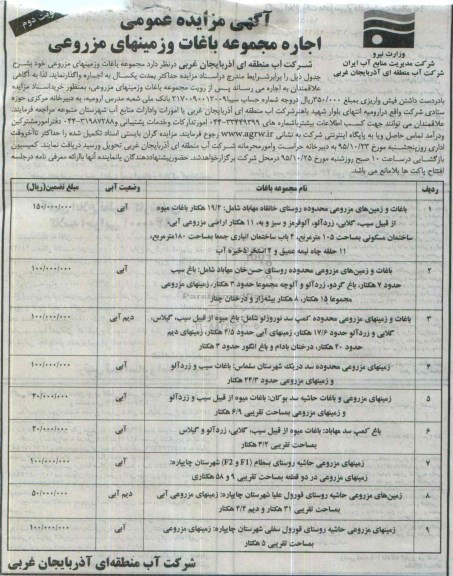 نوبت دوم
آگهی مزایده عمومی
اجاره مجموعه باغات وزمینهای مزروعی
وزارت نیرو
شرکت مدیریت منابع آب ایران
شرکت آب منطقه ای آذربایجان غربی
شرکت آب منطقه ای آذربایجان غربی درنظر دارد مجموعه باغات وزمینهای مزروعی خود بشرح
جدول ذیل را برابرشرایط مندرج دراسناد مزایده حداکثر بمدت یکسال به اجاره واگذارنماید. لذا به آگاهی
علاقمندان به اجاره می رساند پس از رویت مجموعه باغات وزمینهای مزروعی، بمنظور خریداسناد مزایده
بادردست داشتن فیش واریزی بمبلغ ۳۵۰/۰۰۰ ریال دروجه شماره حساب سیبا بانک ملی شعبه مدرس ارومیه، به دبیرخانه مرکزی حوزه
ستادی شرکت واقع درارومیه انتهای بلوار شهید باهنرشرکت آب منطقه ای آذربایجان غربی یا امورات وادارات منابع آب شهرستان متبوعه مراجعه فرمایند:
ودرآمد تماس حاصل ویا به پایگاه اینترنتی شرکت به نشانی www.agrw.ir رجوع فرمایند. مزایده گران بایستی اسناد تکمیل شده را حداکثر تاآخروقت
اداری روزپنجشنبه مورخ ۹۵/۱۰/۲۳ به دبیرخانه حراست وامورمحرمانه شرکت آب منطقه ای آذربایجان غربی تحویل ورسید دریافت نمایند. کمیسیون
بازگشایی درساعت ۱۰ صبح روزشنبه مورخ ۹۵/۱۰/۲۵ درمحل شرکت برگزارخواهدشد. حضورپیشنهاددهندگان یانماینده آنها باارائه معرفی نامه درجلسه
افتتاح پاکت ها بلامانع می باشد.
ردیف نام مجموعه باغات وضعیت آبی مبلغ تضمین(ریال)
۱ باغات و زمین‌های مزروعی محدوده روستای خانقاه مهاباد شامل: ۱۹/۲ هکتار باغات میوه آبی ۱۵۰/۰۰۰/۰۰۰
از قبیل سیب، گلابی، زردآلو، آلوقرمز و سبز و به، ۱۱ هکتار اراضی مزروعی آبی،
ساختمان مسکونی بمساحت ۱۰۵ مترمربع، ۴ باب ساختمان انباری جمعا بمساحت ۱۸۰مترمربع،
۱۱ حلقه چاه نیمه عمیق و ۲ استخر ذخیره آب
۲ باغات و زمینهای مزروعی محدوده روستای حسن‌خان مهاباد شامل: باغ سیب آبی ۱۰۰/۰۰۰/۰۰۰
حدود ۷ هکتار، باغ گردو، زردآلو و آلوچه مجموعا حدود ۳ هکتار، زمینهای مزروعی
مجموعا ۱۵ هکتار، ۸ هکتار بیشه‌زار و درختان چنار
۳ باغات و زمینهای مزروعی محدوده کمپ سد نوروزلو شامل: باغ میوه از قبیل سیب، گیلاس، دیم آبی ۱۰۰/۰۰۰/۰۰۰
گلابی و زردآلو حدود ۱۷/۶ هکتار، زمینهای آبی حدود ۴/۵ هکتار، زمینهای دیم
حدود ۲۰ هکتار، درختان بادام و باغ انگور حدود ۳ هکتار
۴ زمینهای مزروعی محدوده سد دریک شهرستان سلماس: باغات سیب و زردآلو آبی ۱۰۰/۰۰۰/۰۰۰
و زمینهای مزروعی حدود ۲۴/۳ هکتار
۵ زمینهای مزروعی و باغات حاشیه سد بوکان: باغات میوه از قبیل سیب و زردآلو آبی ۲۰/۰۰۰/۰۰۰
و زمینهای مزروعی بمساحت تقریبی ۶/۹ هکتار
۶ باغ کمپ سد مهاباد: باغات میوه از قبیل سیب، گلابی، زردآلو و گیلاس آبی ۲۰/۰۰۰/۰۰۰
بمساحت تقریبی ۴/۲ هکتار
۷ زمینهای مزروعی حاشیه روستای بسطام (F1 و F2) شهرستان چایپاره: آبی ۱۰۰/۰۰۰/۰۰۰
زمینهای مزروعی در دو قطعه بمساحت تقریبی ۹ و ۵۸ هکتاری
۸ زمین‌های مزروعی حاشیه روستای قورول علیا شهرستان چایپاره: زمینهای مزروعی آبی دیم آبی ۵۰/۰۰۰/۰۰۰
بمساحت تقریبی ۳۱ هکتار و دیم ۴/۲ هکتار
۹ زمینهای مزروعی حاشیه روستای قورول سفلی شهرستان چایپاره: زمینهای مزروعی آبی ۱۰۰/۰۰۰/۰۰۰
بمساحت تقریبی ۵ هکتار
شرکت آب منطقه‌ای آذربایجان غربی